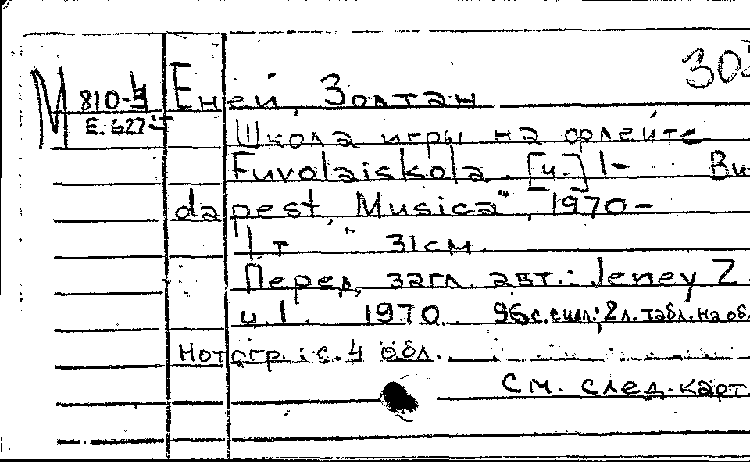 М 810-4 Еней, Золтан 30
Е. 627
Школа игры на флейте
Fuvolaiskola. [ч.] 1- Bu-
dapest, "Musica", 1970-
1 т 31 см.
Перед загл. авт.: Jeney Z.
ч. 1. 1970. 96 с. с илл; 2 л. табл. на об
Нотогр.: с. 4 обл.
См. след. карт